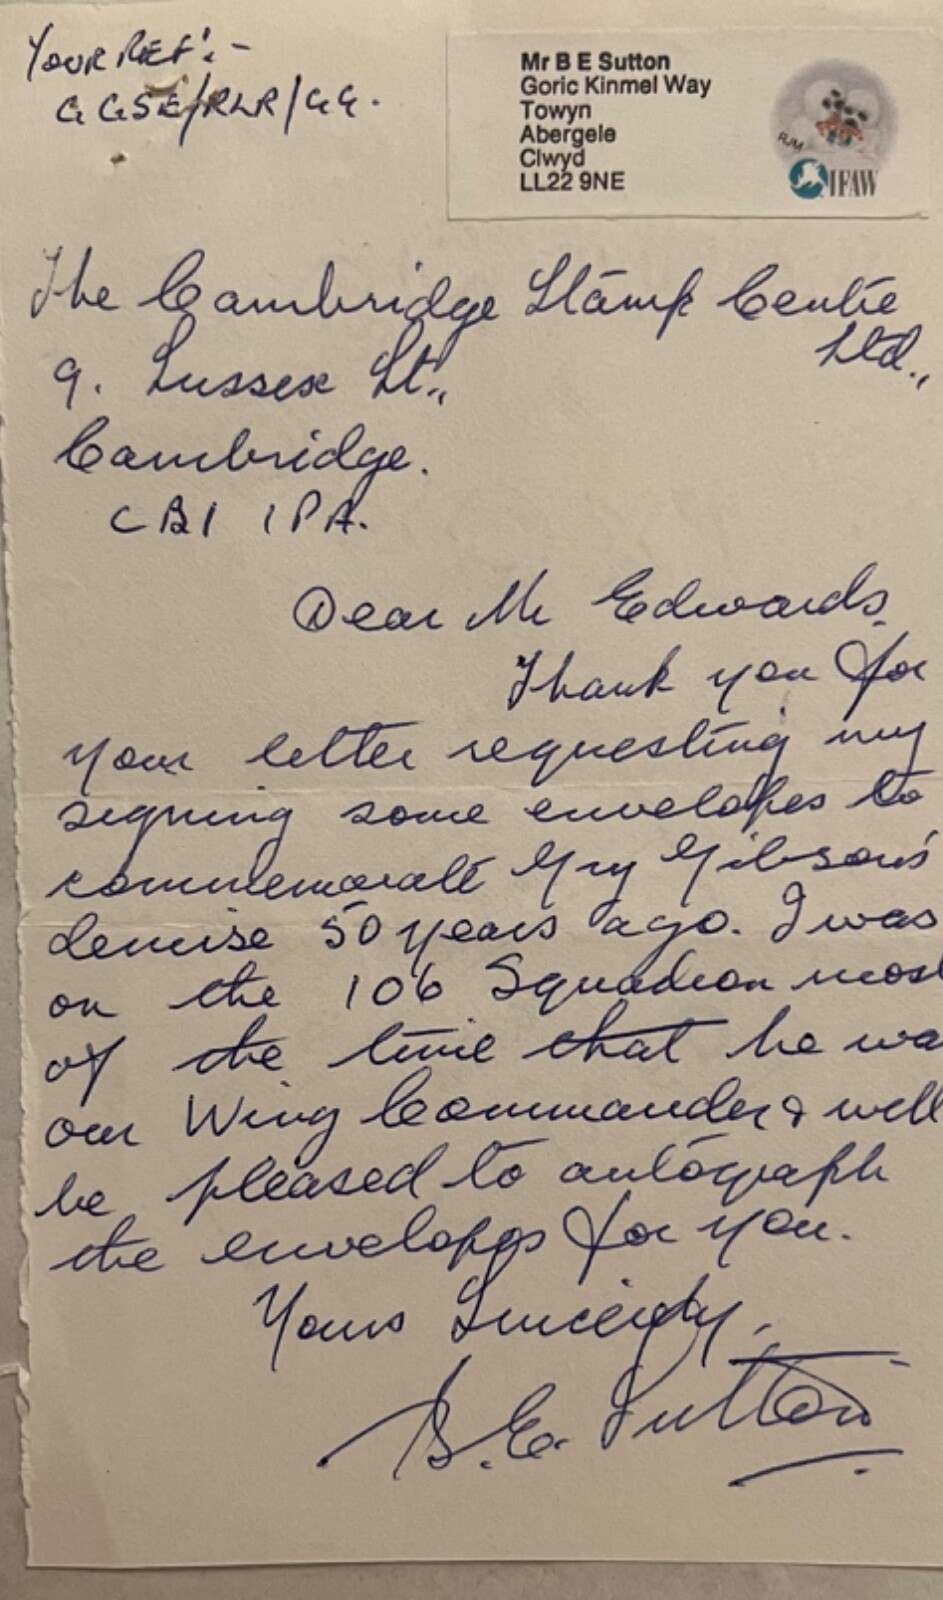 YOUR REF:-
GGSE/RLR/GG.
Mr B E Sutton
Goric Kinmel Way
Towyn
Abergele
Clwyd
LL22 9NE
RJM
IFAW
The Cambridge Stamp Centre
Ltd.,
9. Sussex St.,
Cambridge.
CB1 1PA.
Dear Mr Edwards,
Thank you for
your letter requesting my
signing some envelopes to
commemorate Guy Gibson's
demise 50 years ago. I was
on the 106 Squadron most
of the time that he wa
our Wing Commander & well
be pleased to autograph
the envelopes for you.
Yours Sincerely,
B.E. Sutton